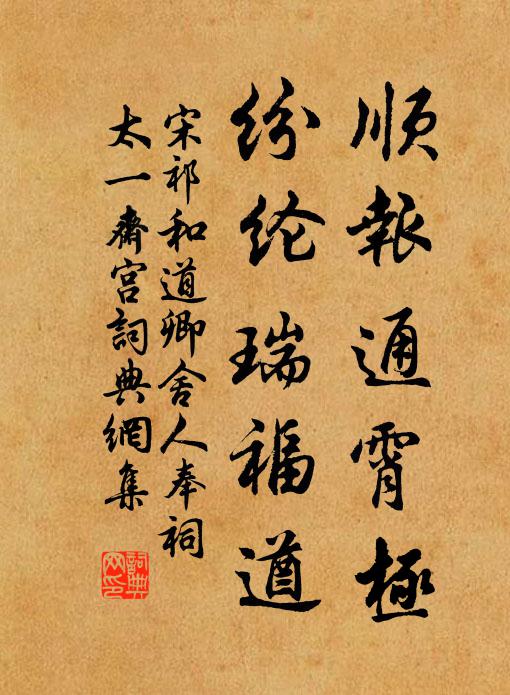 順報通霄極
紛纶瑞福遒
宋祁和道卿舍人奉祠
太一齋宫詞典網集
詞典
网印